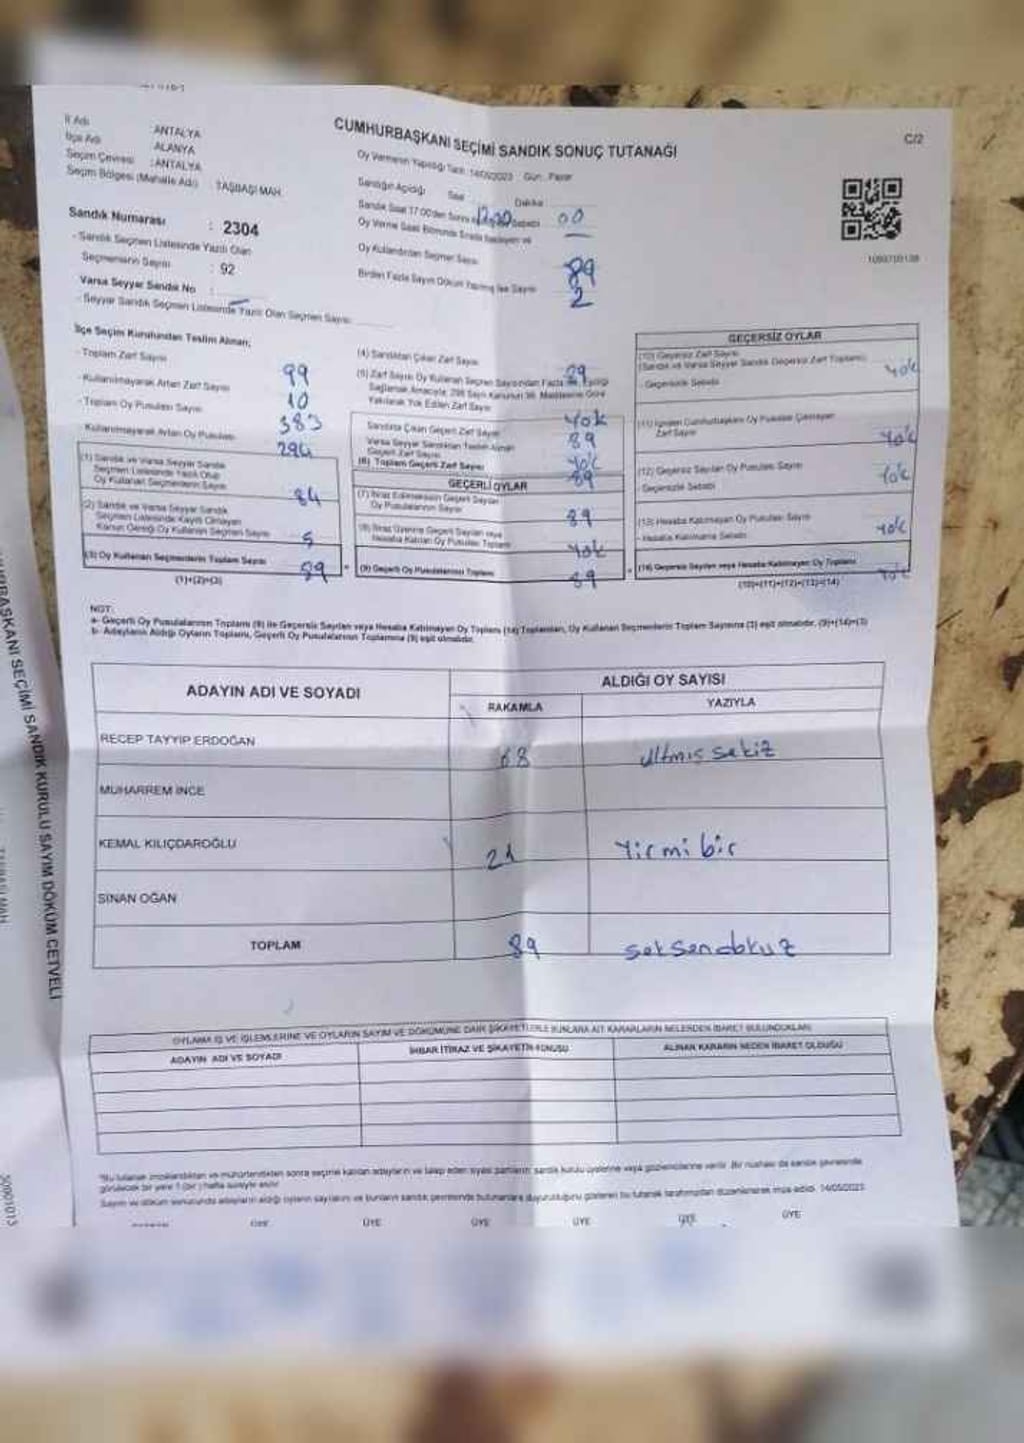 İl Adı ANTALYA
İlçe Adı ALANYA
Seçim Çevresi : ANTALYA
Seçim Bölgesi (Mahalle Adı) TAŞBAŞI MAH.
CUMHURBAŞKANI SEÇİMİ SANDIK SONUÇ TUTANAĞI
C/2
Oy Vermenin Yapıldığı Tarih 14/05/2023 Gün : Pazar
Sandığın Açıldığı Saat Dakika
00
Sandık Numarası : 2304
- Sandık Seçmen Listesinde Yazılı Olan
Seçmenlerin Sayısı : 92
Varsa Seyyar Sandık No :
- Seyyar Sandık Seçmen Listesinde Yazılı Olan Seçmen Sayısı
Oy Kullandırılan Seçmen Sayısı 89
Birden Fazla Sayım Döküm Yapılmış ise Sayısı 2
İlçe Seçim Kurulundan Teslim Alınan;
- Toplam Zarf Sayısı 99
- Kullanılmayarak Artan Zarf Sayısı 10
- Toplam Oy Pusulası Sayısı 383
- Kullanılmayarak Artan Oy Pusulası 294
(1) Sandık ve Varsa Seyyar Sandık
Seçmen Listesinde Yazılı Olup
Oy Kullanan Seçmenlerin Sayısı 84
(2) Sandık ve Varsa Seyyar Sandık
Seçmen Listesinde Kayıtlı Olmayan
Kanun Gereği Oy Kullanan Seçmen Sayısı 5
(3) Oy Kullanan Seçmenlerin Toplam Sayısı 89
(1)+(2)=(3)
(4) Sandıktan Çıkan Zarf Sayısı 89
(5) Zarf Sayısı Oy Kullanan Seçmen Sayısından Fazla ise Eşitliği
Sağlamak Amacıyla; 298 Sayılı Kanunun 98. Maddesine Göre
Yakılarak Yok Edilen Zarf Sayısı Yok
Sandıkta Çıkan Geçerli Zarf Sayısı 89
Varsa Seyyar Sandıktan Teslim Alınan
Geçerli Zarf Sayısı Yok
(6) Toplam Geçerli Zarf Sayısı 89
GEÇERLİ OYLAR
(7) İtiraz Edilmeksizin Geçerli Sayılan
Oy Pusulalarının Sayısı 89
(8) İtiraz Üzerine Geçerli Sayılan veya
Hesaba Katılan Oy Pusulaları Toplamı Yok
(9) Geçerli Oy Pusulalarının Toplamı 89
GEÇERSİZ OYLAR
(10) Geçersiz Zarf Sayısı
(Sandık ve Varsa Seyyar Sandık Geçersiz Zarf Toplamı) Yok
- Geçersizlik Sebebi
(11) İçinden Cumhurbaşkanı Oy Pusulası Çıkmayan
Zarf Sayısı Yok
(12) Geçersiz Sayılan Oy Pusulası Sayısı Yok
- Geçersizlik Sebebi
(13) Hesaba Katılmayan Oy Pusulası Sayısı Yok
- Hesaba Katılmama Sebebi
(14) Geçersiz Sayılan veya Hesaba Katılmayan Oy Toplamı Yok
(10)+(11)+(12)+(13)=(14)
NOT:
a- Geçerli Oy Pusulalarının Toplamı (9) ile Geçersiz Sayılan veya Hesaba Katılmayan Oy Toplamı (14) Toplamları, Oy Kullanan Seçmenlerin Toplam Sayısına (3) eşit olmalıdır. (9)+(14)=(3)
b- Adayların Aldığı Oyların Toplamı, Geçerli Oy Pusulalarının Toplamına (9) eşit olmalıdır.
ADAYIN ADI VE SOYADI
ALDIĞI OY SAYISI
RAKAMLA YAZIYLA
RECEP TAYYİP ERDOĞAN 68 altmış sekiz
MUHARREM İNCE
KEMAL KILIÇDAROĞLU 21 Yirmi bir
SİNAN OĞAN
TOPLAM 89 seksendokuz
OYLAMA İŞ VE İŞLEMLERİNE VE OYLARIN SAYIM VE DÖKÜMÜNE DAİR ŞİKAYETLERLE BUNLARA AİT KARARLARIN NELERDEN İBARET BULUNDUKLARI
ADAYIN ADI VE SOYADI İHBAR İTİRAZ VE ŞİKAYETİN KONUSU ALINAN KARARIN NEDEN İBARET OLDUĞU
*Bu tutanak imzalandıktan ve mühürlendikten sonra seçime katılan adayların ve talep eden siyasi partilerin sandık kurulu üyelerine veya gözlemcilerine verilir. Bir nüshası da sandık çevresinde
görülecek bir yere 1 (bir) hafta süreyle asılır.
Sayım ve döküm sonucunda adayların aldığı oyların sayılarını ve bunların sandık çevresinde bulunanlara duyurulduğunu gösteren bu tutanak tarafımızdan düzenlenerek imza edildi. 14/05/2023
ÜYE ÜYE ÜYE ÜYE ÜYE ÜYE
SEÇİMİ SANDIK KURULU SAYIM DÖKÜM CETVELİ